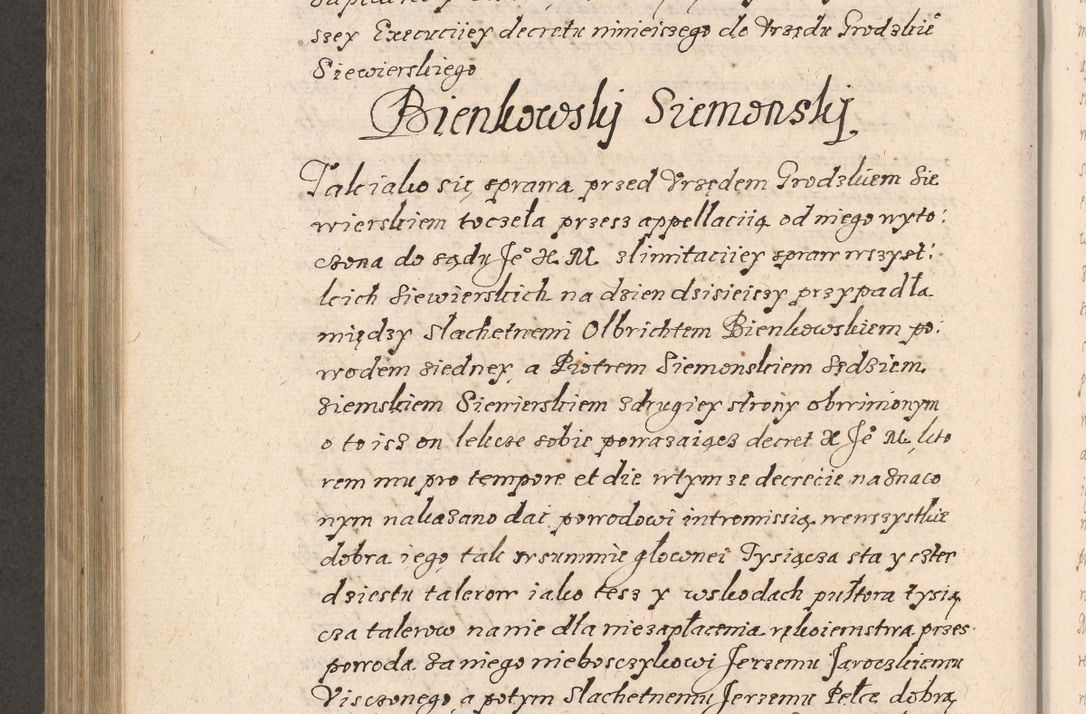 szey Executiiey decretu ninieiszego do Vrzędu Grodzkie°
Siewierskiego
Bienkowsky Siemonsky
Tak iako się sprawa przed Vrzędem Grodzkiem Sie
wierskiem toczeła przesz appellaciią od niego wyto:
czona do sądu Je° X. M. zlimitaciiey spraw wszyst:
kich Siewierskich na dzien dzisieiszy przypadła
między Slachetnemi Olbrichtem Bienkowskiem po:
wodem ziedney, a Piotrem Siemonskiem Sędziem
ziemskiem Siewierskiem zdrugiey strony obwinionym
o to isz on lekcze sobie powazaiącz decret X Je° M. kto
rem mu pro tempore et die wtym ze decrecie naznaco
nym nakazano dać powodowi intromissią wewszystkie
dobra iego, tak wsummie głownei Tysiącza sta y czter
dziestu talerow iako tesz y wskodach pułtora tysią
cza talerow na nie dla niezapłacenia rękoiemstwa przes
powoda za niego nieboszczykowi Jerzemu Jaroczkiemu
Visczonego, a potym Slachetnemu Jerzemu Pełce dobra